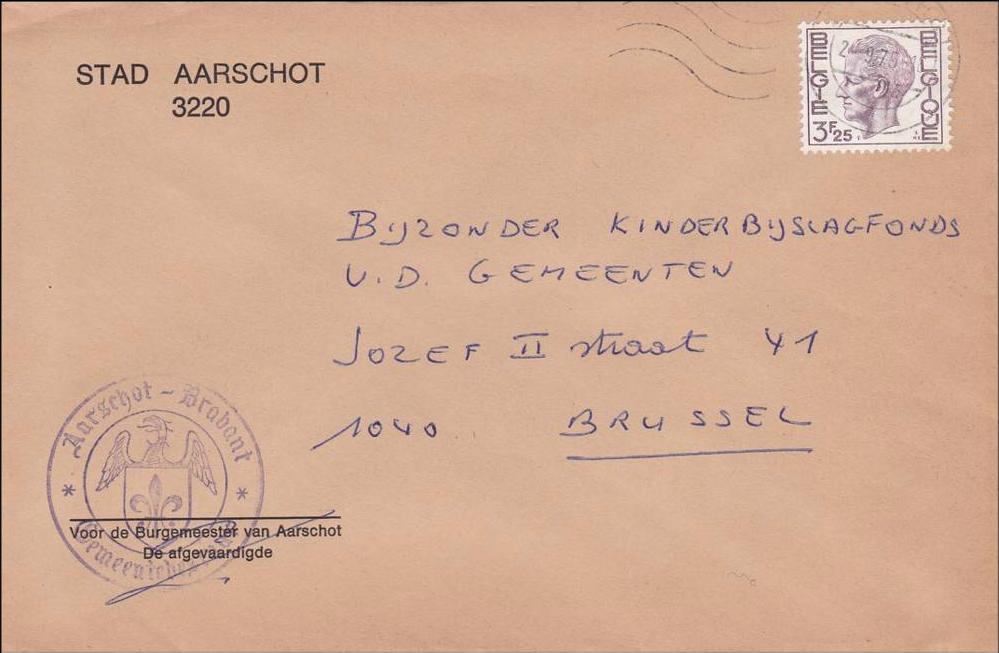 STAD AARSCHOT
3220
BELGIE BELGIQUE
3F25
BIJZONDER KINDERBIJSLAGFONDS
V.D. GEMEENTEN
JOZEF II straat 41
1040 BRUSSEL
Aarschot - Brabant
Voor de Burgemeester van Aarschot
De afgevaardigde